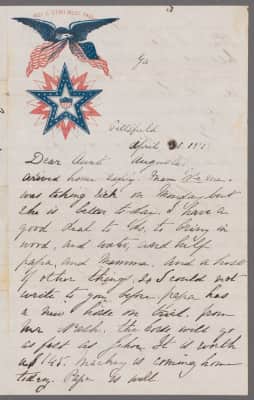 Pittsfield
April 1861
Dear Aunt Augusta
around home
was taking sick on Monday but
she is better to day. I have a
good deal to do. to bring in
wood, and water, and help
papa, and Mamma. and a host
of other things. so I could not
write to you before papa has
a new horse on trial. from
Mr the horse will go
as fast as John It is worth
$145. Mackey is coming home
to day. Papa is well